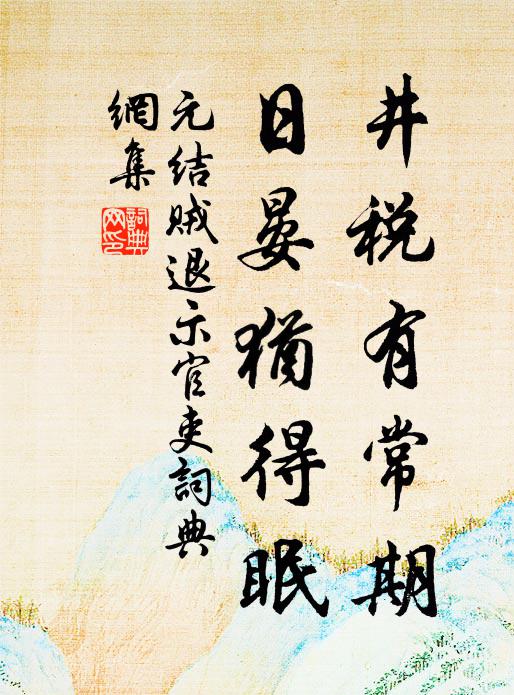 井税有常期
日晏猶得眠
元结贼退示官吏詞典
網集
詞典
网印